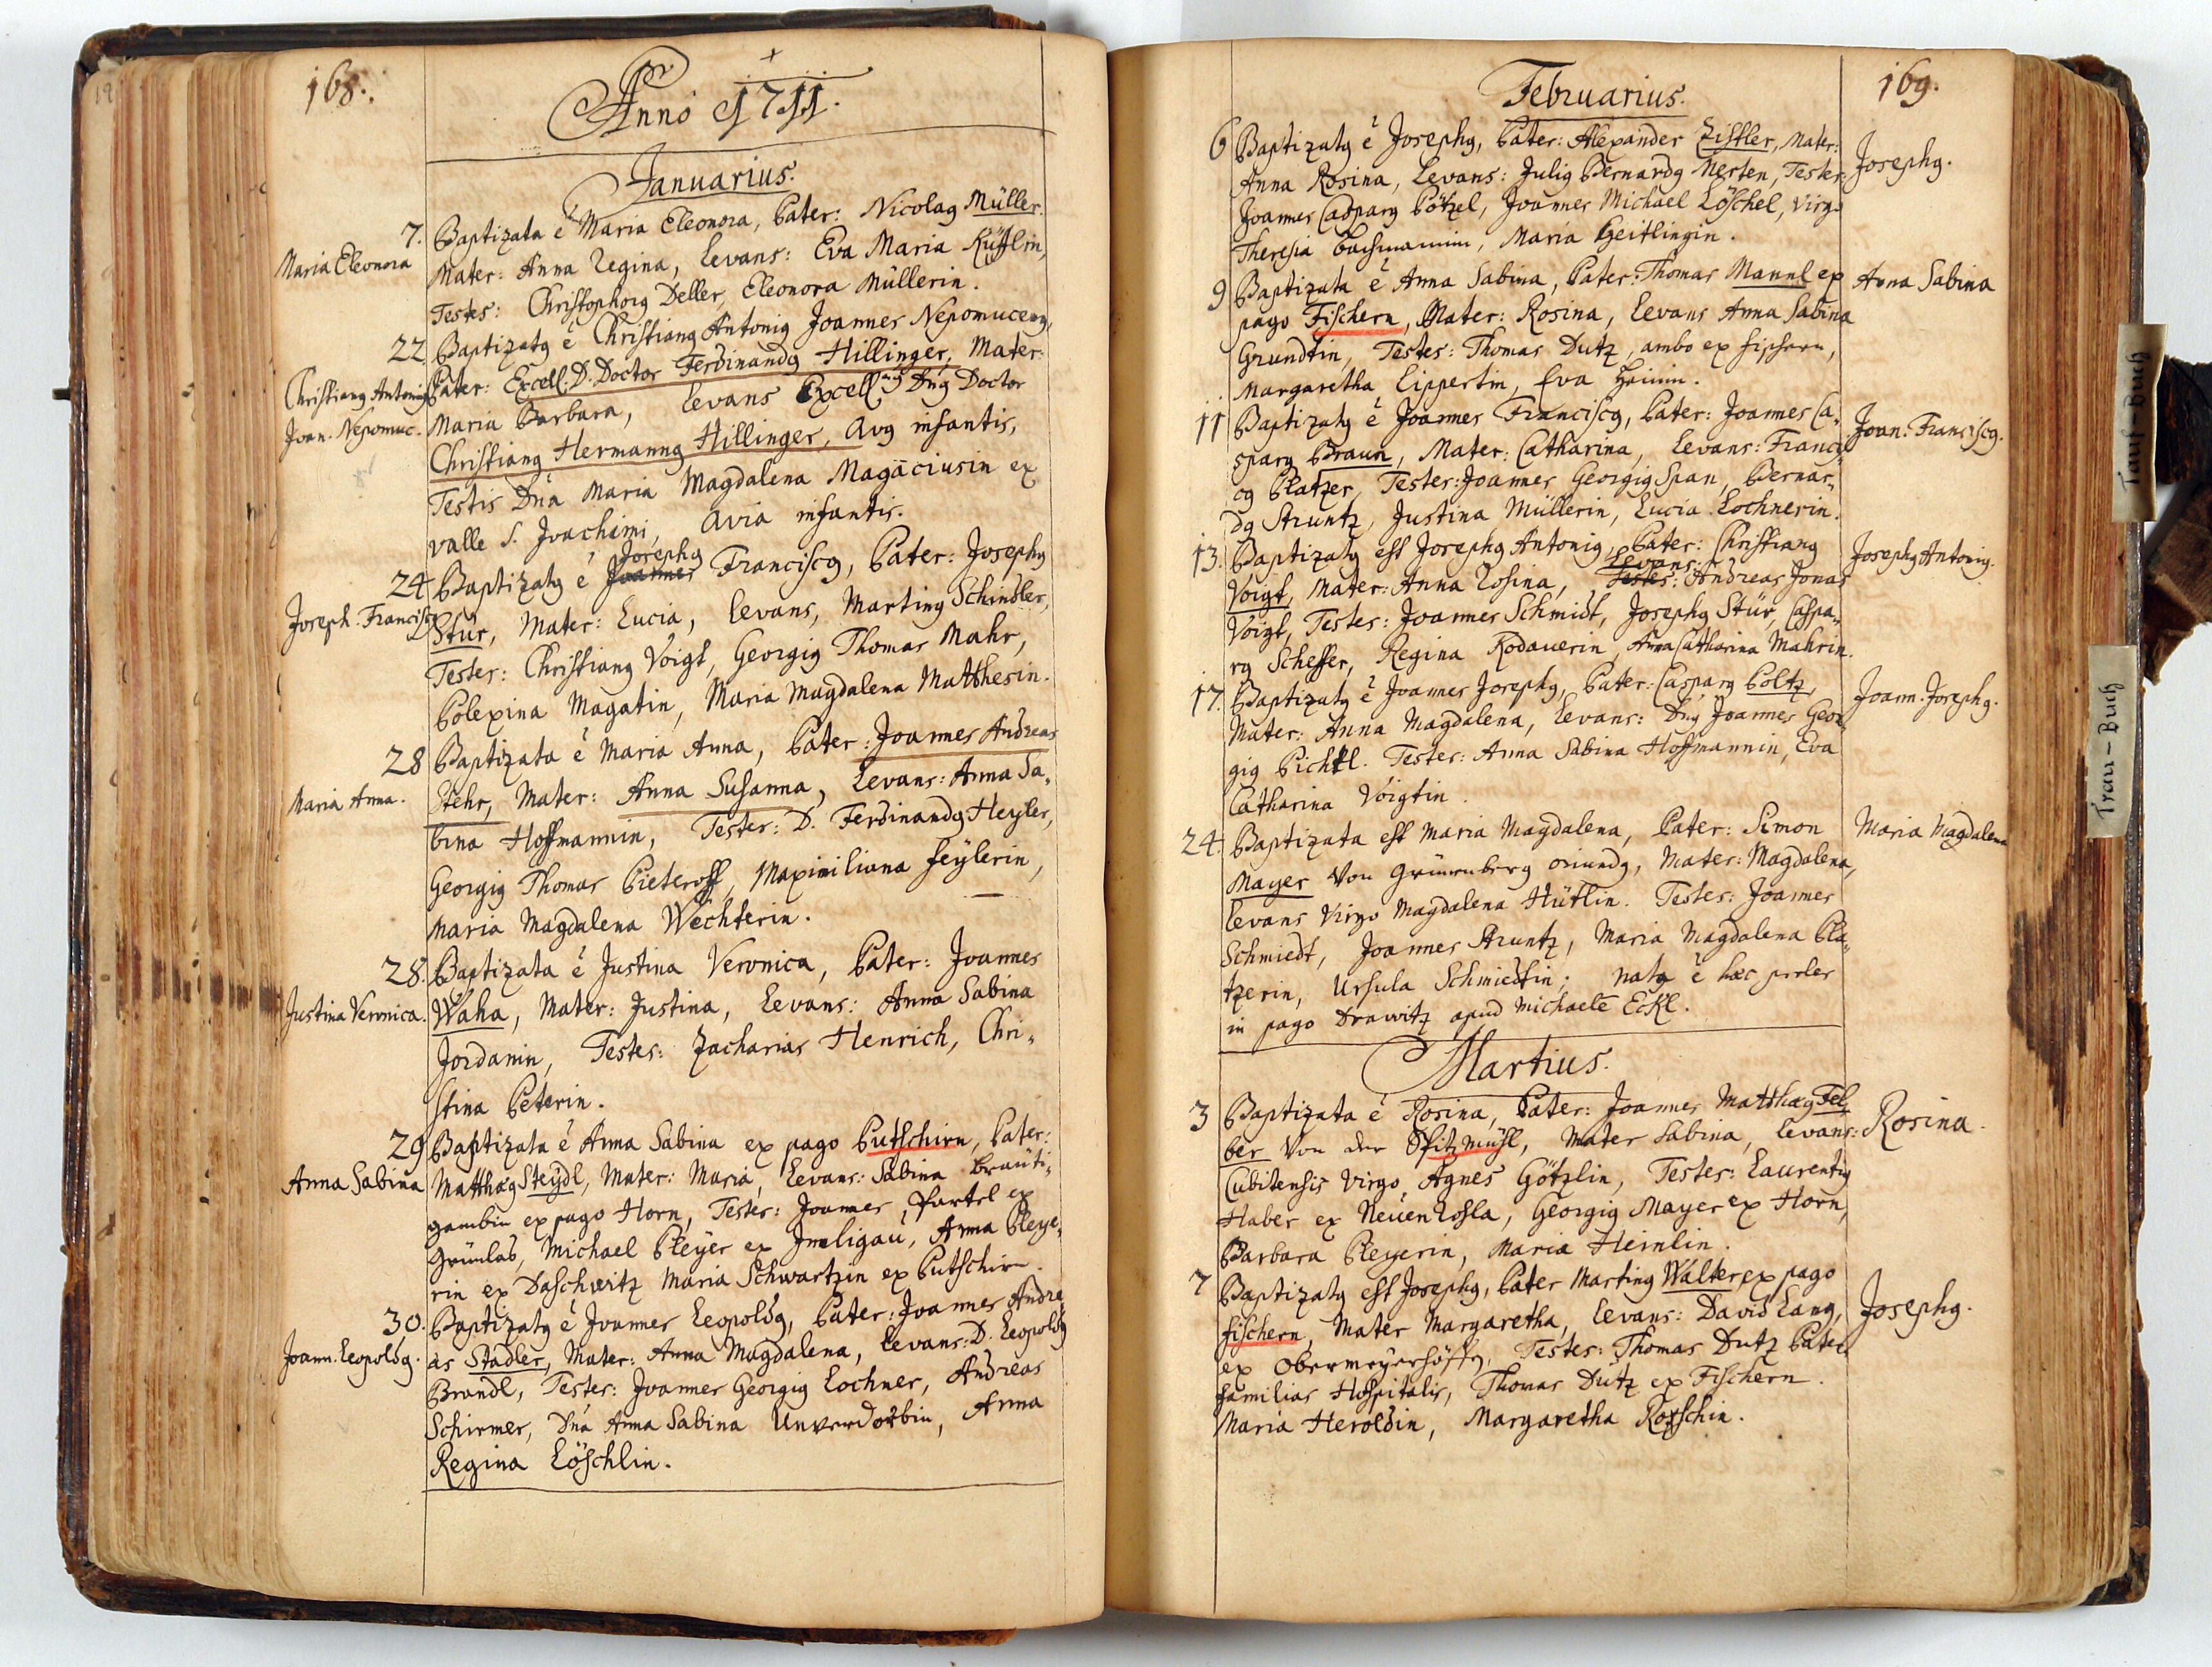 168.
Anno 1711.
Januarius.
7. Baptizata ē Maria Eleonora, Pater: Nicolaꝰ Müller.
Maria Eleonora
Mater: Anna Regina, Levans: Eva Maria
Testes: Christophorꝰ Deller, Eleonora Müllerin.
22 Baptizatꝰ ē Christianꝰ Antoniꝰ Joannes Nepomucenꝰ,
Christianꝰ Antoniꝰ
Joan. Nepomuc.
Pater: Excell. D. Doctor Ferdinandꝰ Hillinger, Mater:
Maria Barbara, Levans Excell. Dnꝰ Doctor
Christianꝰ Hermannꝰ Hillinger, Avꝰ infantis,
Testis Dna Maria Magdalena Magäciusin ex
valle S. Joachimi, Avia infantis.
24 Baptizatꝰ ē Joannes Josephꝰ Franciscꝰ, Pater: Josephꝰ
Joseph. Franciscꝰ
Stür, Mater: Lucia, Levans, Martinꝰ Schindler,
Testes: Christianꝰ Voigt, Georgiꝰ Thomas Mahr,
Polexina Magatin, Maria Magdalena Matthesin.
28 Baptizata ē Maria Anna, Pater: Joannes Andreas
Maria Anna.
Stehr, Mater: Anna Susanna, Levans: Anna Sa-
bina Hoffmannin, Testes: D. Ferdinandꝰ Heyler,
Georgiꝰ Thomas Pieteroff, Maximiliana Heylerin,
Maria Magdalena Wechterin.
28. Baptizata ē Justina Veronica, Pater: Joannes
Justina Veronica.
Waha, Mater: Justina, Levans: Anna Sabina
Jordanin, Testes: Zacharias Henrich, Chri-
stina Peterin.
29 Baptizata ē Anna Sabina ex pago Putschirn, Pater:
Anna Sabina
Matthæꝰ Steydl, Mater: Maria, Levans: Sabina Breüti-
gambin ex pago Horn, Testes: Joannes ex
Grünlas, Michael Pleyer ex Imligau, Anna Pleye-
rin ex Daschwitz Maria Schwartzin ex Putschirn.
30. Baptizatꝰ ē Joannes Leopoldꝰ, Pater: Joannes Andre
Joann. Leopoldꝰ.
as Stadler, Mater: Anna Magdalena, Levans: D. Leopoldꝰ
Brandl, Testes: Joannes Georgiꝰ Lochner, Andreas
Schirmer, Dna Anna Sabina Unverdorbin, Anna
Regina Löschlin.
169.
Februarius.
6 Baptizatꝰ ē Josephꝰ, Pater: Alexander Zistler, Mater:
Josephꝰ.
Anna Rosina, Levans: Juliꝰ Bernardꝰ Nerten, Testes:
Joannes Casparꝰ Pötzel, Joannes Michael Löschel, Virgo
Theresia Bachmannin, Maria Heitlingin.
9 Baptizata ē Anna Sabina, Pater: Thomas Mannl ex
Anna Sabina
pago Fischern, Mater: Rosina, Levans Anna Sabina
Grundtin, Testes: Thomas Dutz, ambo ex Fischern,
Margaretha Lippertin, Eva
11 Baptizatꝰ ē Joannes Franciscꝰ, Pater: Joannes Ca-
Joan. Franciscꝰ.
sparꝰ Braun, Mater: Catharina, Levans: Francis
cꝰ Platzer, Testes: Joannes Georgiꝰ Span, Bernar-
dꝰ Struntz, Justina Müllerin, Lucia Lochnerin.
13. Baptizatꝰ est Josephꝰ Antoniꝰ, Pater: Christianꝰ
Josephꝰ Antoniꝰ.
Voigt, Mater: Anna Rosina, Testes: Levans: Andreas Jonas
Voigt, Testes: Joannes Schmidt, Josephꝰ Stür, Caspa-
rꝰ Scheffer, Regina Rodauerin, Anna Catharina Mahrin.
17. Baptizatꝰ ē Joannes Josephꝰ, Pater: Casparꝰ Poltz,
Joann. Josephꝰ.
Mater: Anna Magdalena, Levans: Dnꝰ Joannes Geor-
giꝰ Pichtl. Testes: Anna Sabina Hoffmannin, Eva
Catharina Voigtin.
24. Baptizata est Maria Magdalena, Pater: Simon
Maria Magdalena
Mayer von Grünenberg oriundꝰ, Mater: Magdalena,
Levans Virgo Magdalena Hütlin. Testes: Joannes
Schmiedt, Joannes Struntz, Maria Magdalena Pla-
tzerin, Ursula Schmiedtin; nata ē hæc proles
in pago Drawitz apud Michaelē Eckl.
Martius.
3 Baptizata ē Rosina, Pater: Joannes Matthæꝰ Fel
Rosina.
ber von der Spitzmühl, Mater Sabina, Levans:
Cubitensis Virgo Agnes Götzlin, Testes: Laurentiꝰ
Haber ex Neüen Rohla, Georgiꝰ Mayer ex Horn,
Barbara Pleyerin, Maria Heinlin.
7 Baptizatꝰ est Josephꝰ, Pater Martinꝰ Walter ex pago
Josephꝰ.
Fischern, Mater Margaretha, Levans: David Lang,
ex Obermeyerhöffen, Testes: Thomas Dutz Pater
familias Hospitalis, Thomas Dütz ex Fischern.
Maria Heroldin, Margaretha Rotschin.
Tauf-Buch
Trau-Buch